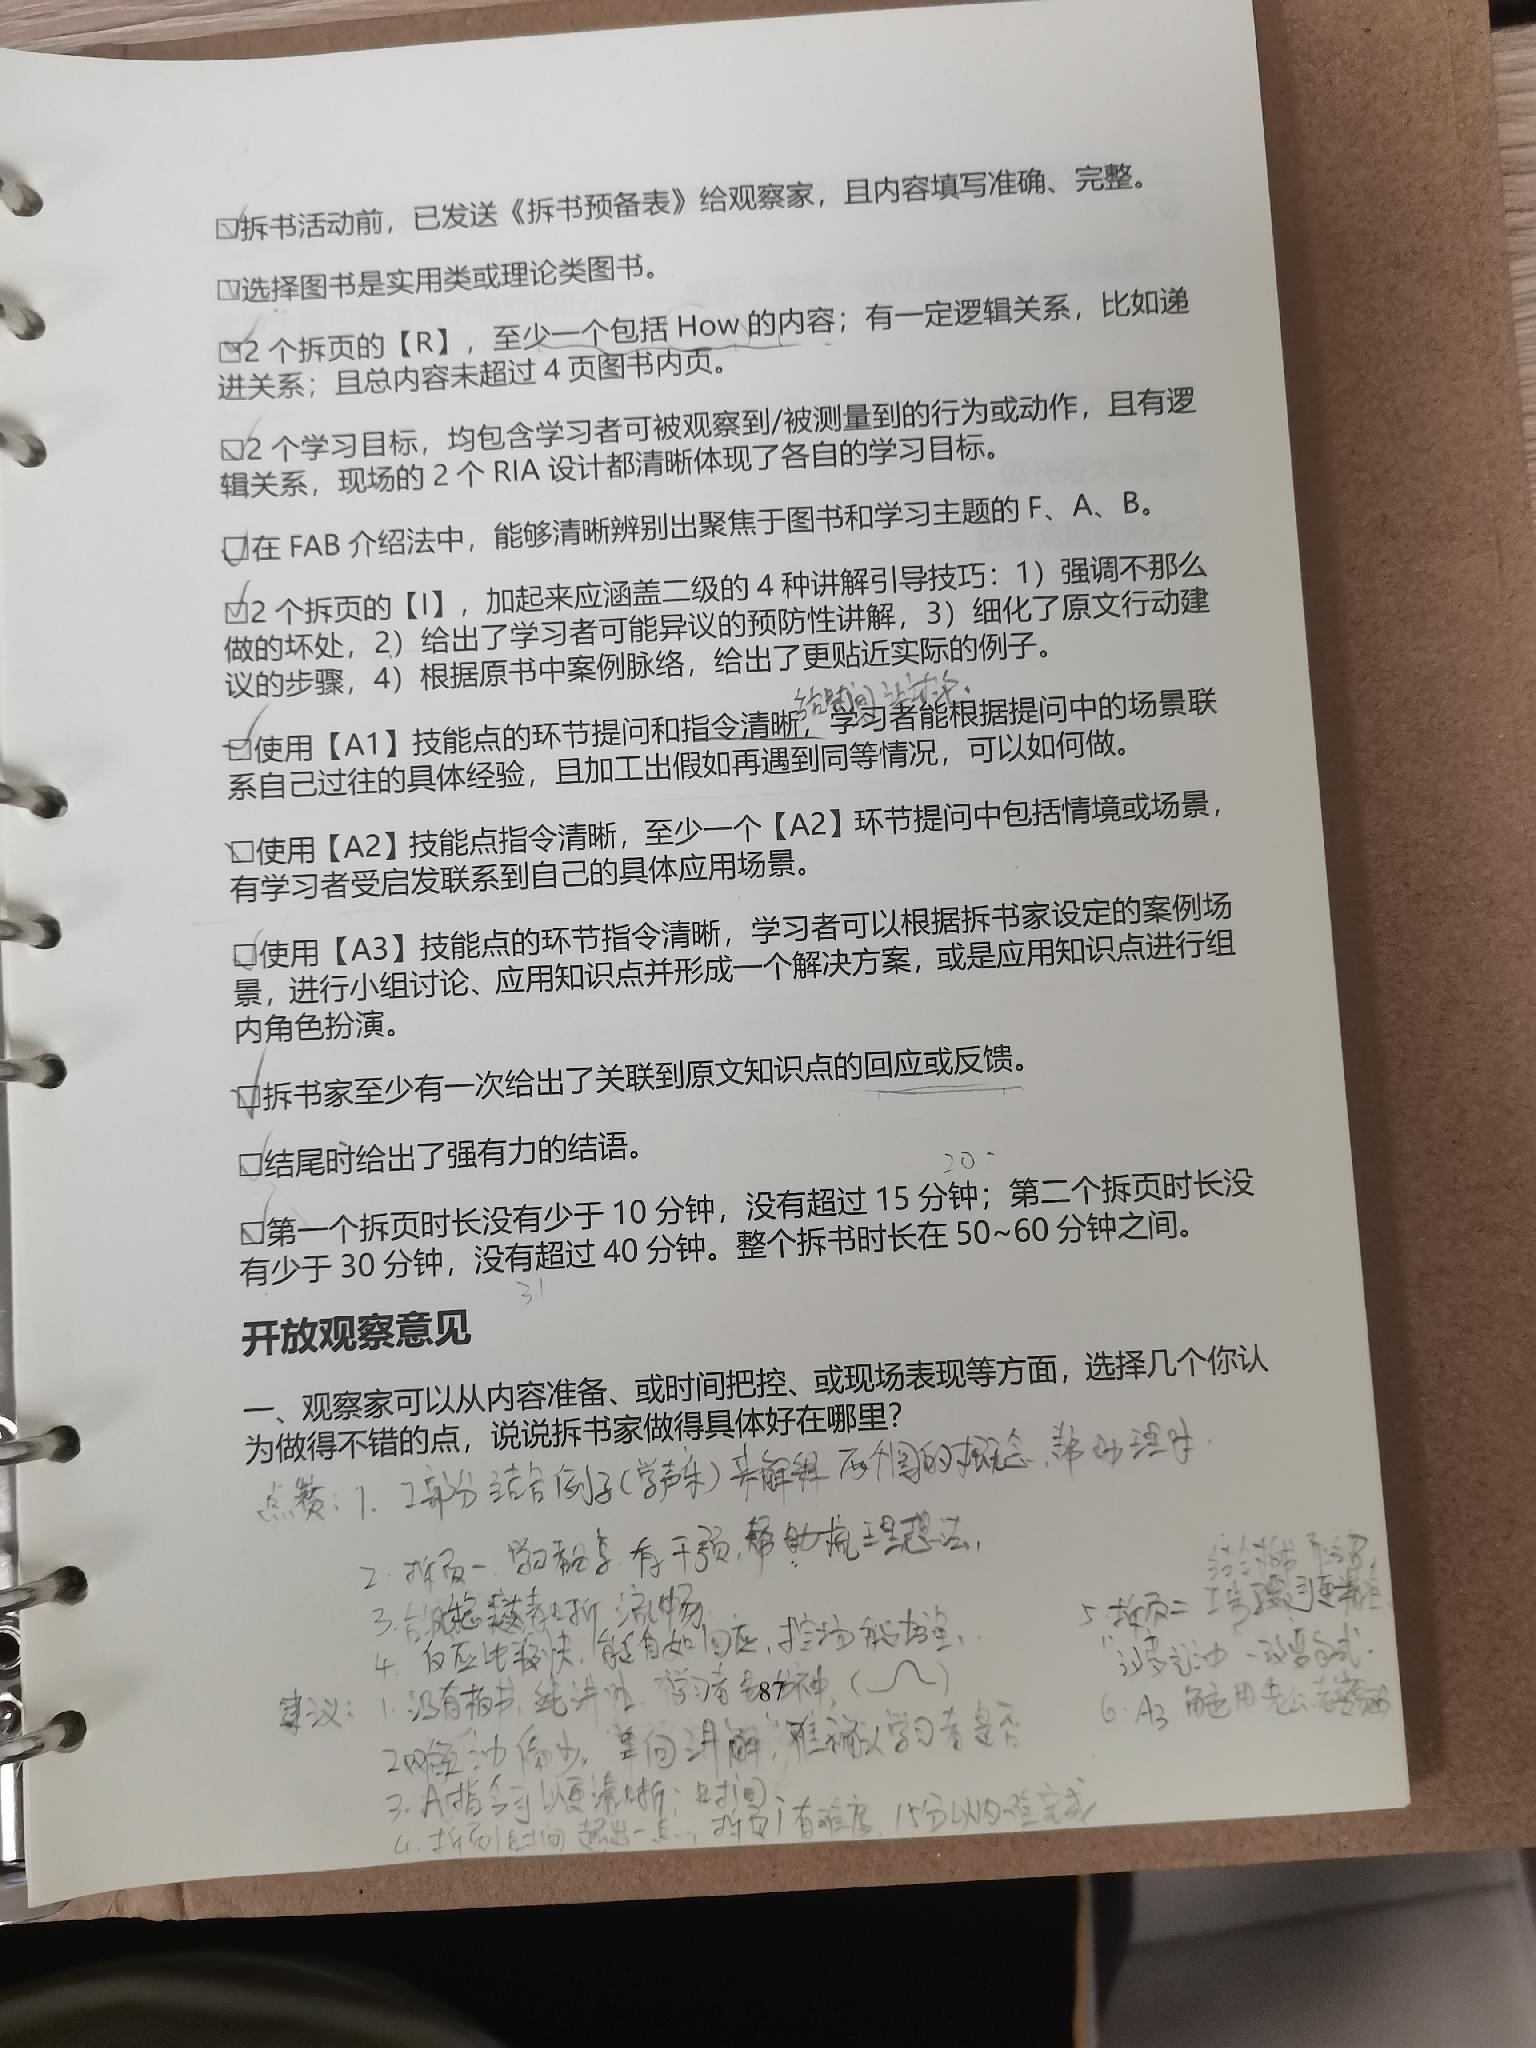 拆书活动前，已发送《拆书预备表》给观察家，且内容填写准确、完整。
选择图书是实用类或理论类图书。
2 个拆页的【R】，至少一个包括 How 的内容；有一定逻辑关系，比如递
进关系；且总内容未超过 4 页图书内页。
2 个学习目标，均包含学习者可被观察到/被测量到的行为或动作，且有逻
辑关系，现场的 2 个 RIA 设计都清晰体现了各自的学习目标。
在 FAB 介绍法中，能够清晰辨别出聚焦于图书和学习主题的 F、A、B。
2 个拆页的【I】，加起来应涵盖二级的 4 种讲解引导技巧：1）强调不那么
做的坏处，2）给出了学习者可能异议的预防性讲解，3）细化了原文行动建
议的步骤，4）根据原书中案例脉络，给出了更贴近实际的例子。
给时间讨论.
使用【A1】技能点的环节提问和指令清晰，学习者能根据提问中的场景联
系自己过往的具体经验，且加工出假如再遇到同等情况，可以如何做。
使用【A2】技能点指令清晰，至少一个【A2】环节提问中包括情境或场景，
有学习者受启发联系到自己的具体应用场景。
使用【A3】技能点的环节指令清晰，学习者可以根据拆书家设定的案例场
景，进行小组讨论、应用知识点并形成一个解决方案，或是应用知识点进行组
内角色扮演。
拆书家至少有一次给出了关联到原文知识点的回应或反馈。
结尾时给出了强有力的结语。
20
第一个拆页时长没有少于 10 分钟，没有超过 15 分钟；第二个拆页时长没
有少于 30 分钟，没有超过 40 分钟。整个拆书时长在 50~60 分钟之间。
31
开放观察意见
一、观察家可以从内容准备、或时间把控、或现场表现等方面，选择几个你认
为做得不错的点，说说拆书家做得具体好在哪里？
点赞：1. I部分结合例子(学声乐)来解释 的概念，帮助理解.
2. 拆页一 学习者分享 有干预，帮助梳理想法，
3. 清晰 流畅
4. 反应比较快，能自如回应，控场能力强，
5. 拆页二
6. A3 运用
建议：1. 没有板书，纯讲授，学习者 走神，
87
2. 互动偏少，单向讲解，难确认学习者是否
3. A指令可以更清晰；时间；
4. 拆页1时间超出一点，拆页1有难度，15分以内 完成